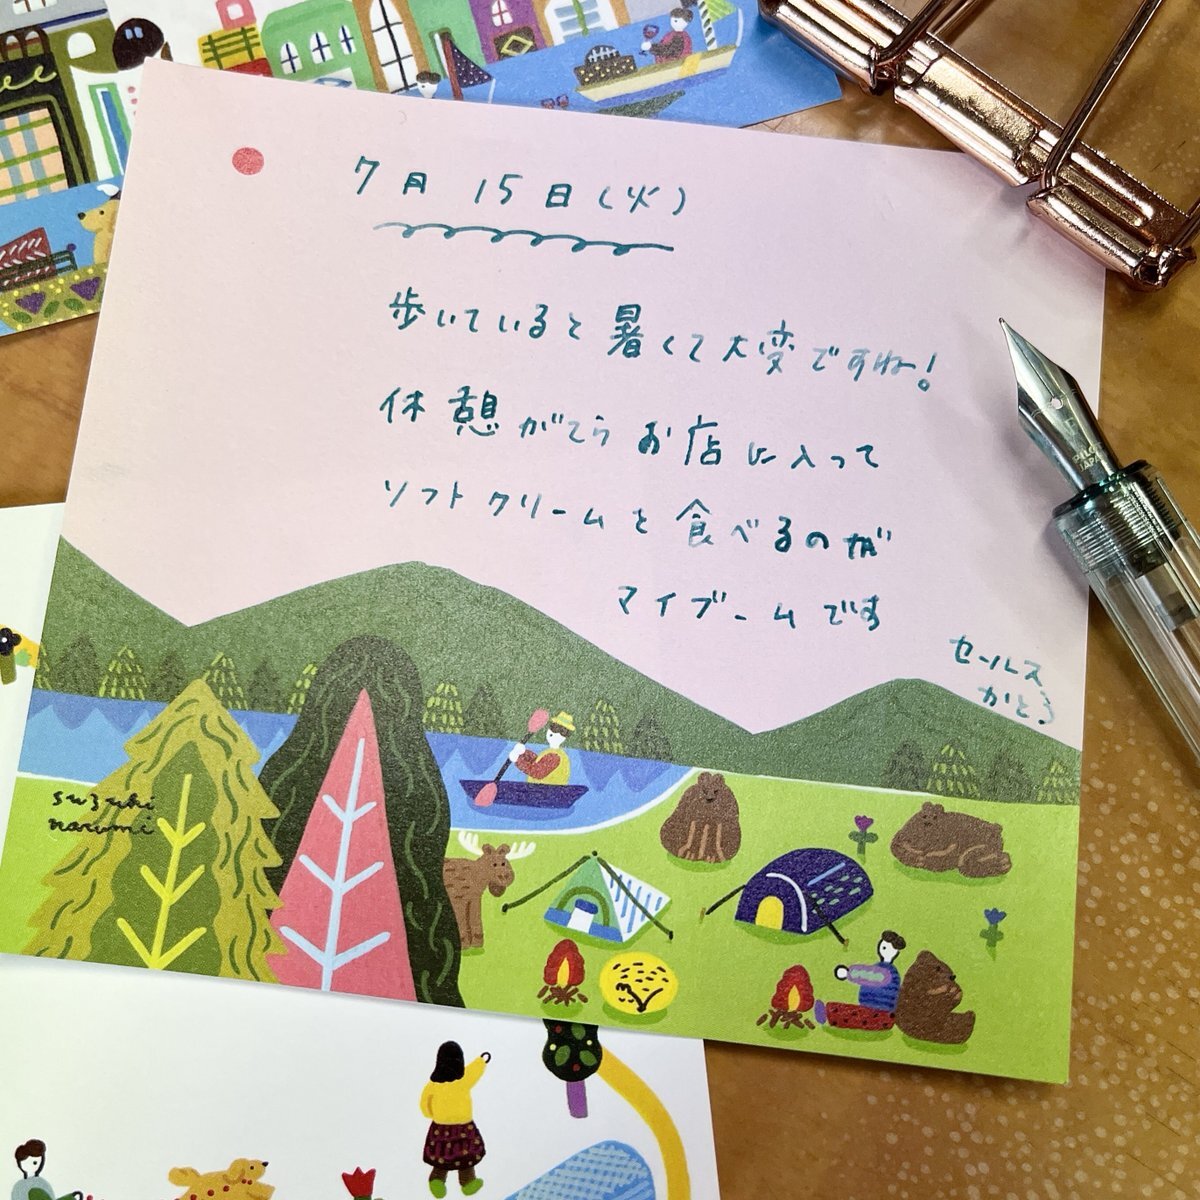 7月 15日(火)
歩いていると暑くて大変ですね!
休憩がてらお店に入って
ソフトクリームを食べるのが
マイブームです
セールス
かとう
suzuki
narumi
PILOT
JAPAN